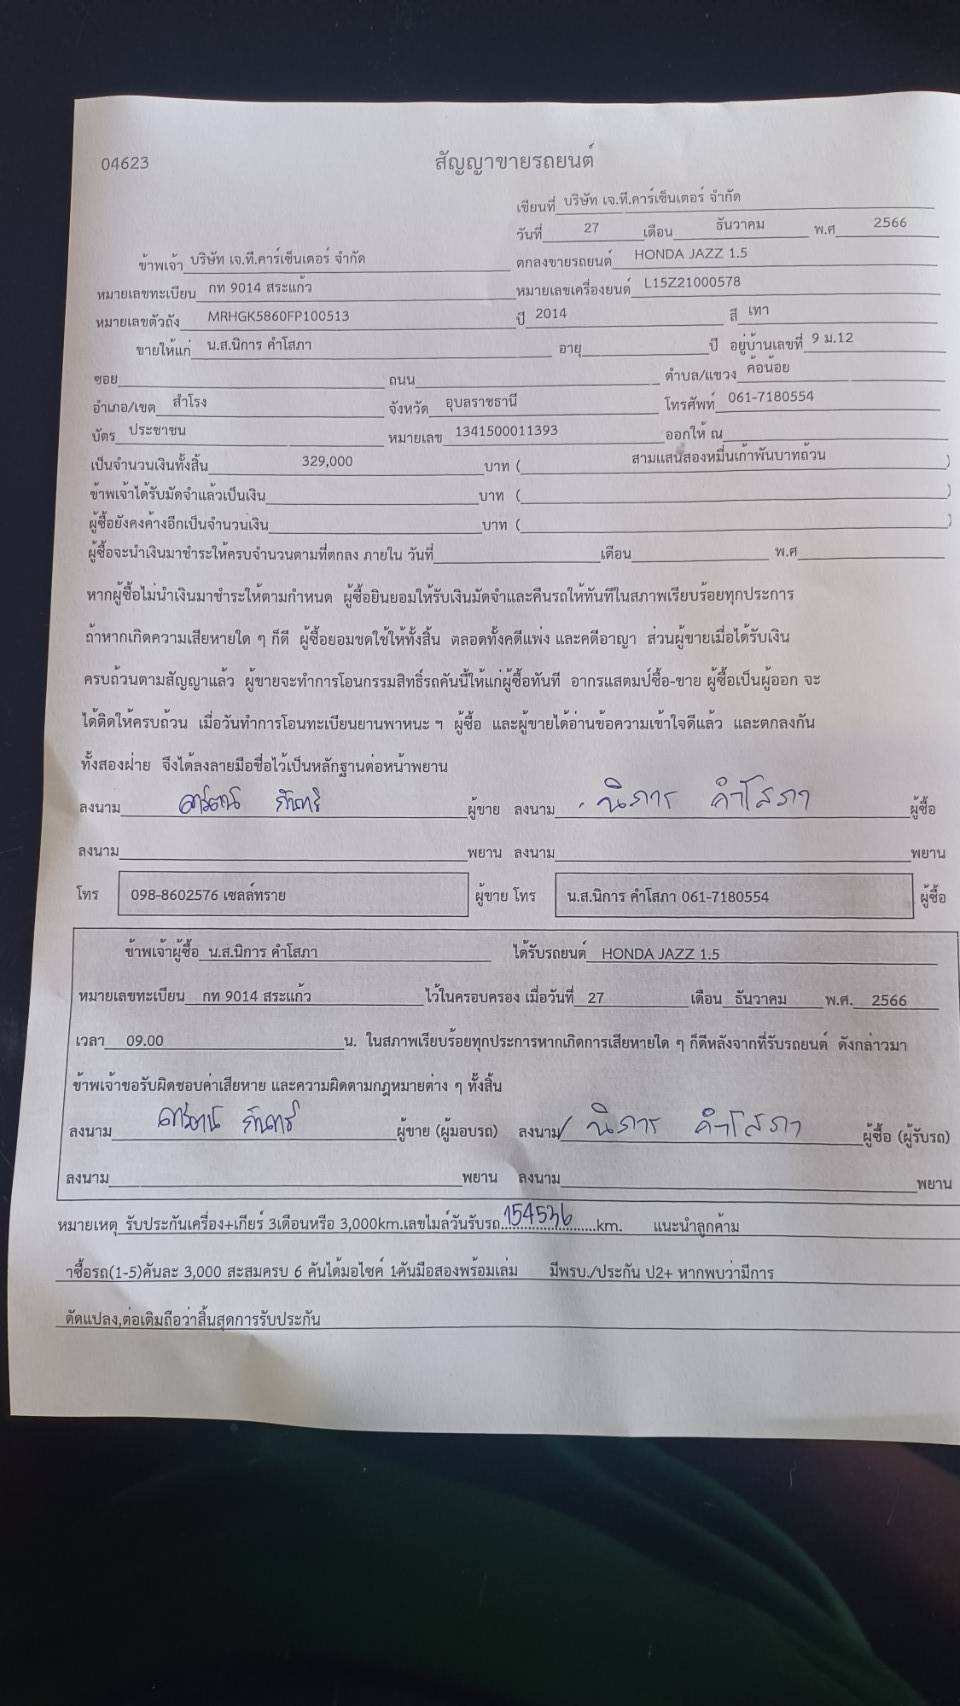 04623
สัญญาขายรถยนต์
เขียนที่ บริษัท เจ.ที.คาร์เซ็นเตอร์ จำกัด
วันที่ 27 เดือน ธันวาคม พ.ศ 2566
ข้าพเจ้า บริษัท เจ.ที.คาร์เซ็นเตอร์ จำกัด ตกลงขายรถยนต์ HONDA JAZZ 1.5
หมายเลขทะเบียน กท 9014 สระแก้ว หมายเลขเครื่องยนต์ L15Z21000578
หมายเลขตัวถัง MRHGK5860FP100513 ปี 2014 สี เทา
ขายให้แก่ น.ส.นิการ คำโสภา อายุ ปี อยู่บ้านเลขที่ 9 ม.12
ซอย ถนน ตำบล/แขวง ค้อน้อย
อำเภอ/เขต สำโรง จังหวัด อุบลราชธานี โทรศัพท์ 061-7180554
บัตร ประชาชน หมายเลข 1341500011393 ออกให้ ณ
เป็นจำนวนเงินทั้งสิ้น 329,000 บาท ( สามแสนสองหมื่นเก้าพันบาทถ้วน )
ข้าพเจ้าได้รับมัดจำแล้วเป็นเงิน บาท ( )
ผู้ซื้อยังคงค้างอีกเป็นจำนวนเงิน บาท ( )
ผู้ซื้อจะนำเงินมาชำระให้ครบจำนวนตามที่ตกลง ภายใน วันที่ เดือน พ.ศ
หากผู้ซื้อไม่นำเงินมาชำระให้ตามกำหนด ผู้ซื้อยินยอมให้รับเงินมัดจำและคืนรถให้ทันทีในสภาพเรียบร้อยทุกประการ
ถ้าหากเกิดความเสียหายใด ๆ ก็ดี ผู้ซื้อยอมชดใช้ให้ทั้งสิ้น ตลอดทั้งคดีแพ่ง และคดีอาญา ส่วนผู้ขายเมื่อได้รับเงิน
ครบถ้วนตามสัญญาแล้ว ผู้ขายจะทำการโอนกรรมสิทธิ์รถคันนี้ให้แก่ผู้ซื้อทันที อากรแสตมป์ซื้อ-ขาย ผู้ซื้อเป็นผู้ออก จะ
ได้ติดให้ครบถ้วน เมื่อวันทำการโอนทะเบียนยานพาหนะ ฯ ผู้ซื้อ และผู้ขายได้อ่านข้อความเข้าใจดีแล้ว และตกลงกัน
ทั้งสองฝ่าย จึงได้ลงลายมือชื่อไว้เป็นหลักฐานต่อหน้าพยาน
ลงนาม ผู้ขาย ลงนาม นิการ คำโสภา ผู้ซื้อ
ลงนาม พยาน ลงนาม พยาน
โทร 098-8602576 เซลล์ทราย ผู้ขาย โทร น.ส.นิการ คำโสภา 061-7180554 ผู้ซื้อ
ข้าพเจ้าผู้ซื้อ น.ส.นิการ คำโสภา ได้รับรถยนต์ HONDA JAZZ 1.5
หมายเลขทะเบียน กท 9014 สระแก้ว ไว้ในครอบครอง เมื่อวันที่ 27 เดือน ธันวาคม พ.ศ. 2566
เวลา 09.00 น. ในสภาพเรียบร้อยทุกประการหากเกิดการเสียหายใด ๆ ก็ดีหลังจากที่รับรถยนต์ ดังกล่าวมา
ข้าพเจ้าขอรับผิดชอบค่าเสียหาย และความผิดตามกฎหมายต่าง ๆ ทั้งสิ้น
ลงนาม ผู้ขาย (ผู้มอบรถ) ลงนาม นิการ คำโสภา ผู้ซื้อ (ผู้รับรถ)
ลงนาม พยาน ลงนาม พยาน
หมายเหตุ รับประกันเครื่อง+เกียร์ 3เดือนหรือ 3,000km.เลขไมล์วันรับรถ 154536 km. แนะนำลูกค้าม
าซื้อรถ(1-5)คันละ 3,000 สะสมครบ 6 คันได้มอไซค์ 1คันมือสองพร้อมเล่ม มีพรบ./ประกัน ป2+ หากพบว่ามีการ
ดัดแปลง,ต่อเติมถือว่าสิ้นสุดการรับประกัน